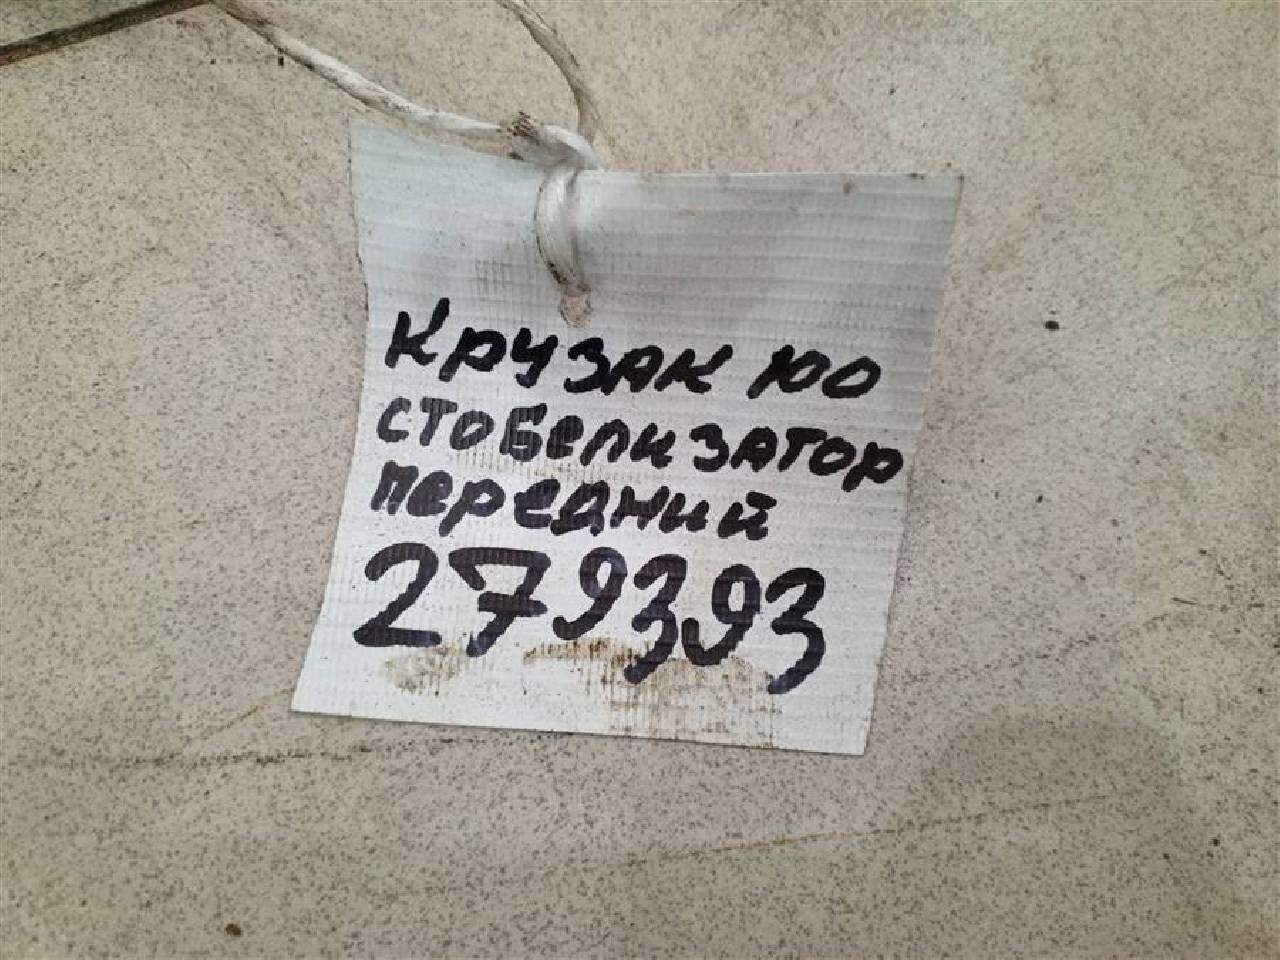 Крузак 100
стобелизатор
передний
279393